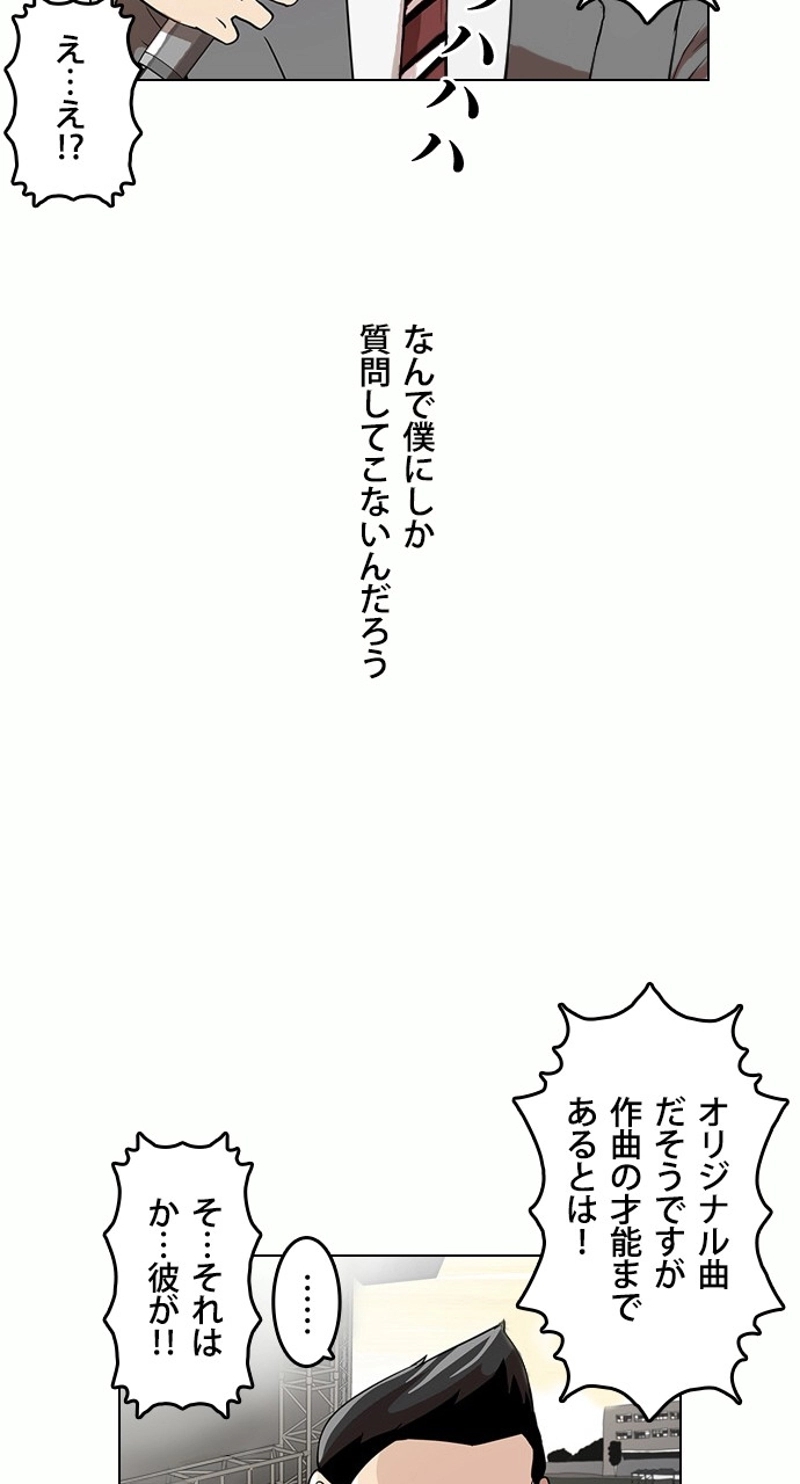 ハハハ
え…え!?
なんで僕にしか
質問してこないんだろう
オリジナル曲
だそうですが
作曲の才能まで
あるとは！
……
そ…それは
か…彼が!!